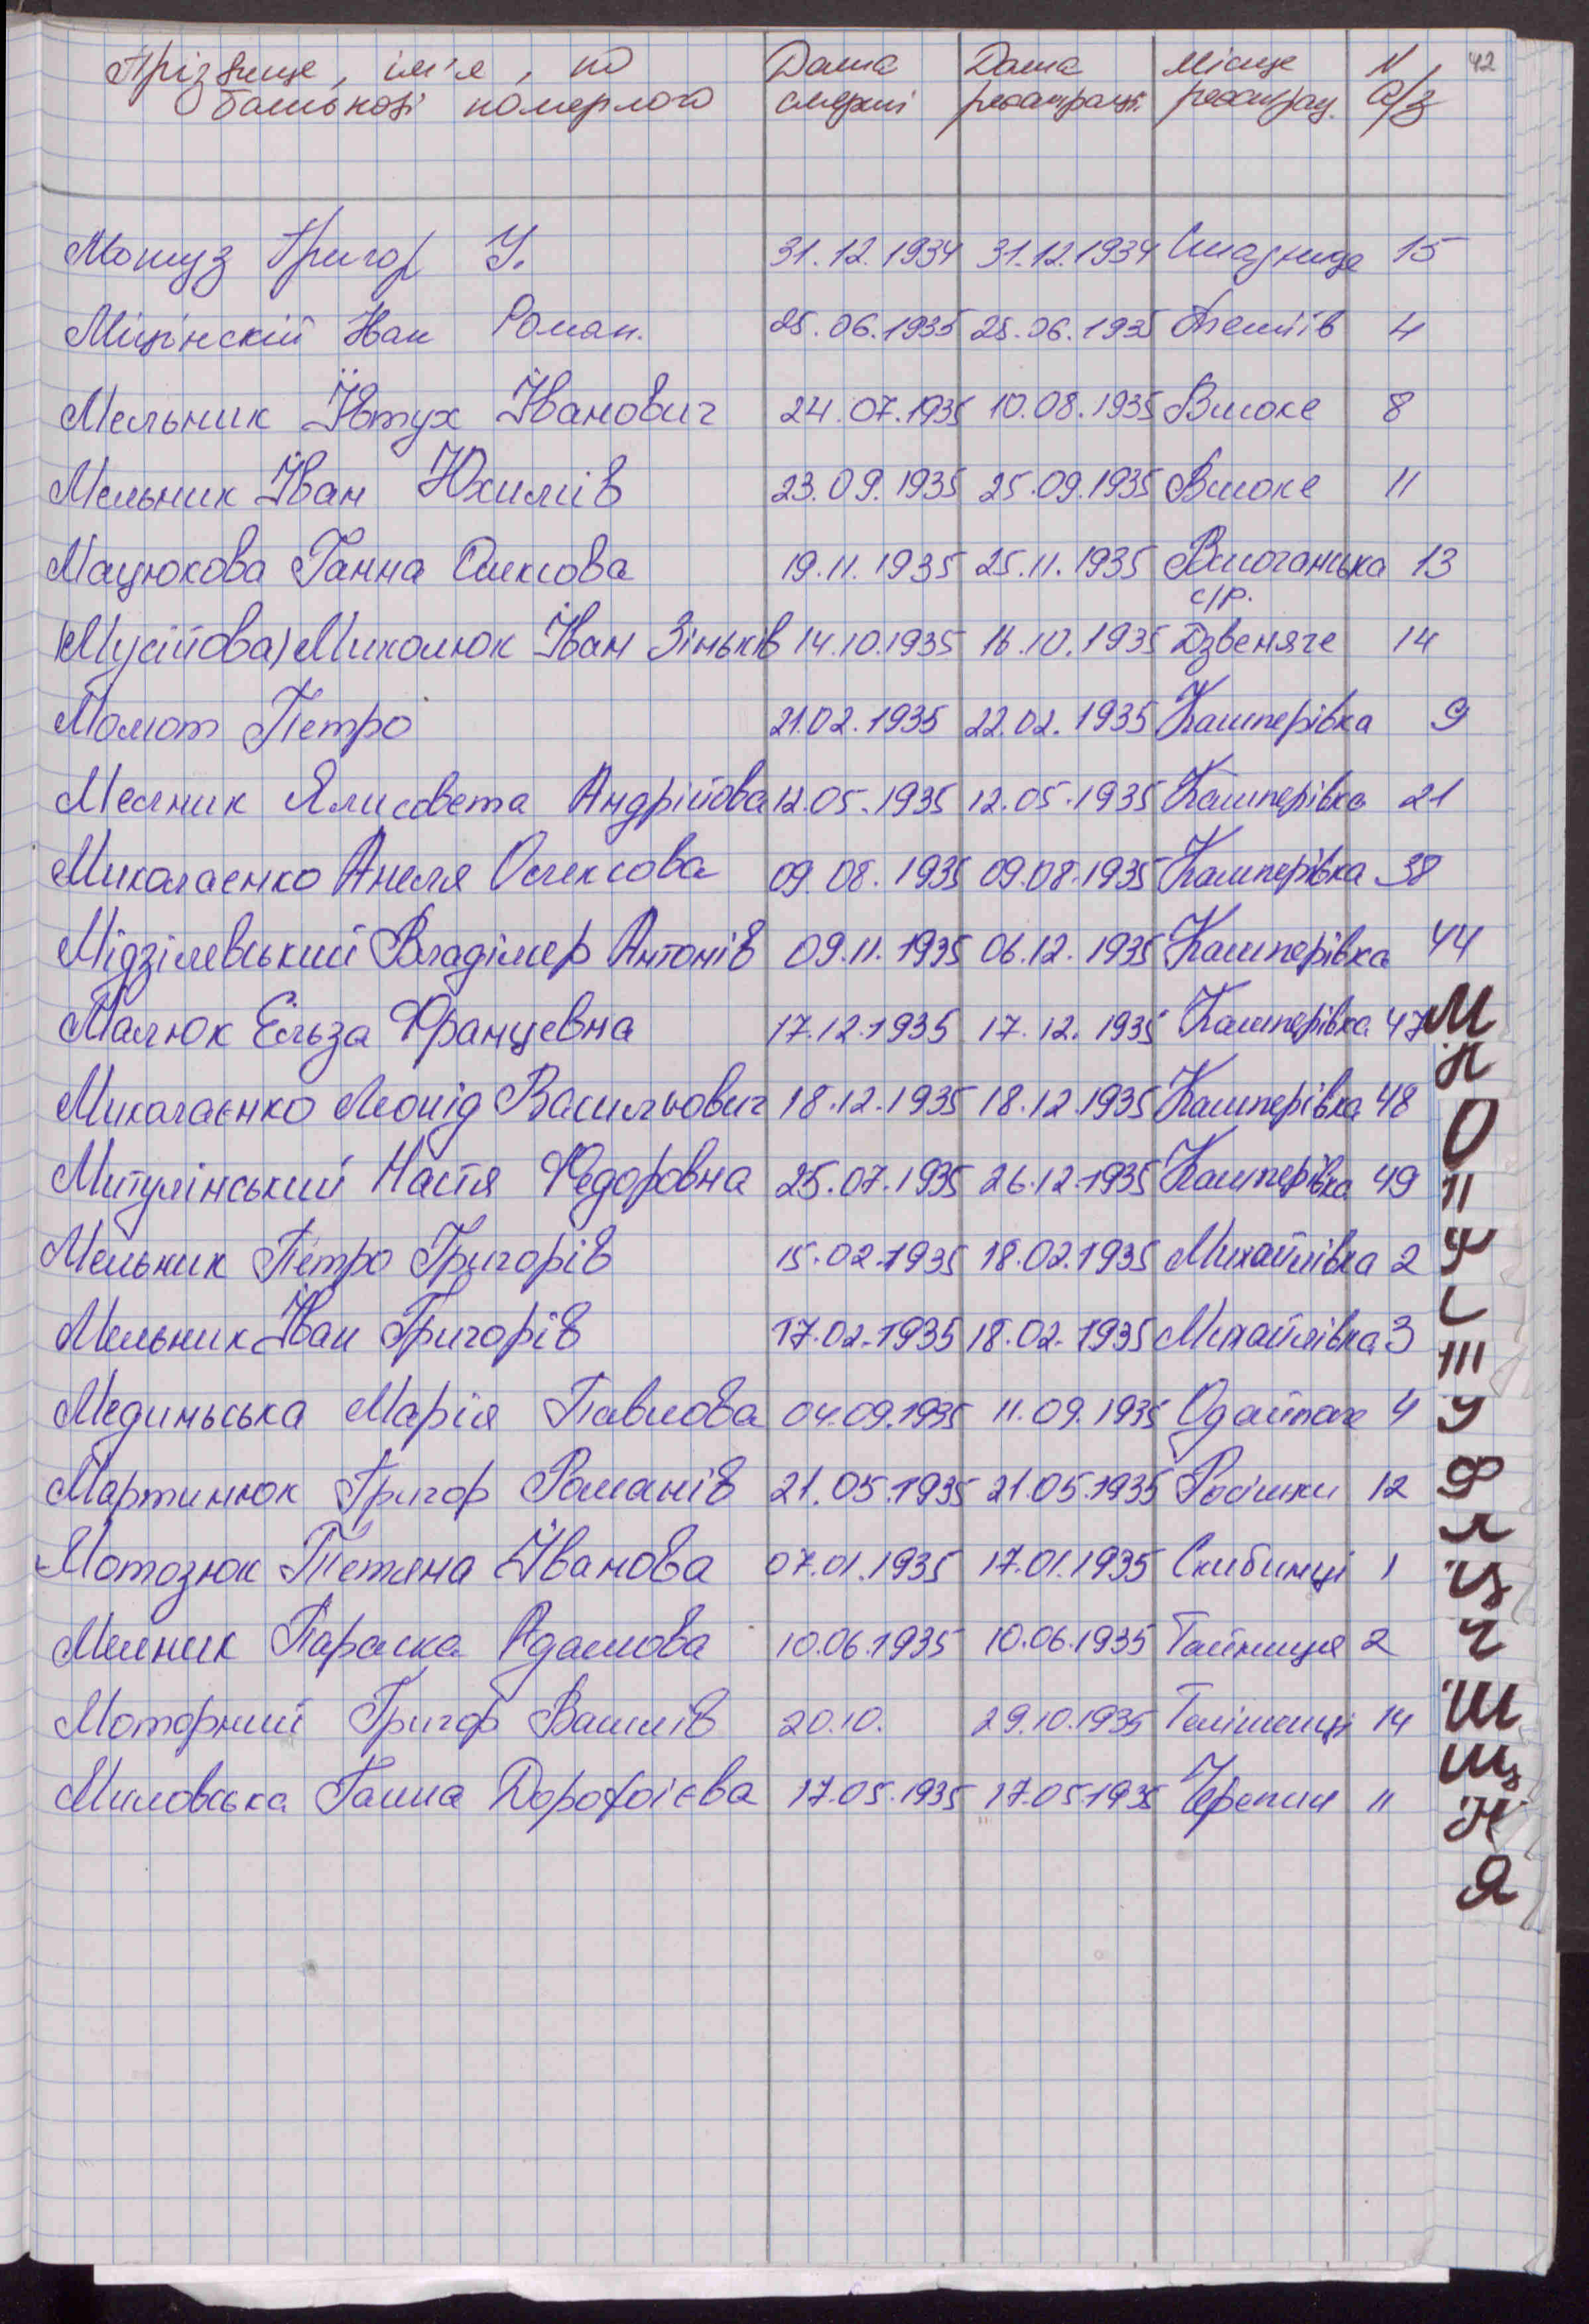 Прізвище, ім'я, по Дата Дата Місце N 42
батькові померлого смерті реєстрації реєстрац. а/з
Мотуз Григор У. 31.12.1934 31.12.1934 15
Міцінскій Іван Роман. 25.06.1935 25.06.1935 4
Мельник Ївтух Їванович 24.07.1935 10.08.1935 Високе 8
Мельник Їван Юхимів 23.09.1935 25.09.1935 Високе 11
Мацюкова Ганна Олексова 19.11.1935 25.11.1935 13
с/р.
(Мусійова) Миколюк Їван Зіньків 14.10.1935 16.10.1935 Дзвеняче 14
Момот Петро 21.02.1935 22.02.1935 Кашперівка 9
Мелник Ялисовета Андрійова 12.05.1935 12.05.1935 Кашперівка 21
Миколаенко Анеля Олексова 09.08.1935 09.08.1935 Кашперівка 38
Мідзілевський Владімер Антонів 09.11.1935 06.12.1935 Кашперівка 44
Малюк Ельза Францевна 17.12.1935 17.12.1935 Кашперівка 47
Миколаєнко Леонід Васильович 18.12.1935 18.12.1935 Кашперівка 48
Митулінський Настя Федоровна 25.07.1935 26.12.1935 Кашперівка 49
Мельник Петро Григорів 15.02.1935 18.02.1935 Михайлівка 2
Мельник Їван Григорів 17.02.1935 18.02.1935 Михайлівка 3
Мединьська Марія Павлова 04.09.1935 11.09.1935 Одайполе 4
Мартинюк Григор Романів 21.05.1935 21.05.1935 Росішки 12
Мотозюк Тетяна Їванова 07.01.1935 17.01.1935 Скибинці 1
Мелник Параска Адамова 10.06.1935 10.06.1935 Тайниця 2
Моторний Григор Василів 20.10. 29.10.1935 Телішенці 14
Миловська Ганна Дорофоієва 17.05.1935 17.05.1935 Черепин 11
М
Н
О
П
Р
С
Т
У
Ф
Х
Ц
Ч
Ш
Щ
Ю
Я